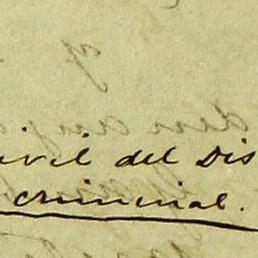 ivil del Dis
criminal.